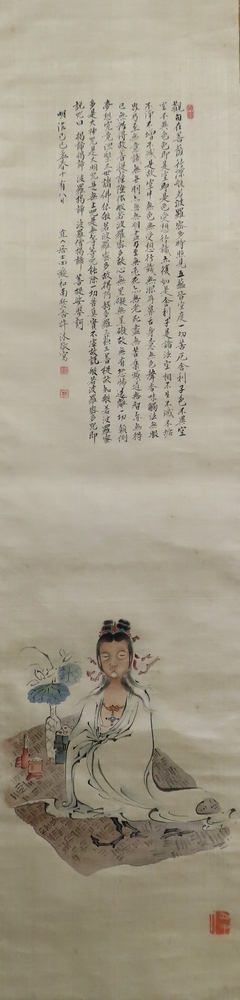 觀自在菩薩行深般若波羅蜜多時照見五蘊皆空度一切苦厄舍利子色不異空
空不異色色即是空空即是色受想行識亦復如是舍利子是諸法空相不生不滅不垢
不淨不增不減是故空中無色無受想行識無眼耳鼻舌身意無色聲香味觸法無眼
界乃至無意識界無無明亦無無明盡乃至無老死亦無老死盡無苦集滅道無智亦無得
以無所得故菩提薩埵依般若波羅蜜多故心無罣礙無罣礙故無有恐怖遠離一切顛倒
夢想究竟涅槃三世諸佛依般若波羅蜜多故得阿耨多羅三藐三菩提故知般若波羅蜜
多是大神咒是大明咒是無上咒是無等等咒能除一切苦真實不虛故說般若波羅蜜多咒即
說咒曰 揭諦揭諦 波羅揭諦 波羅僧揭諦 菩提娑婆訶
明治己巳春十有八日